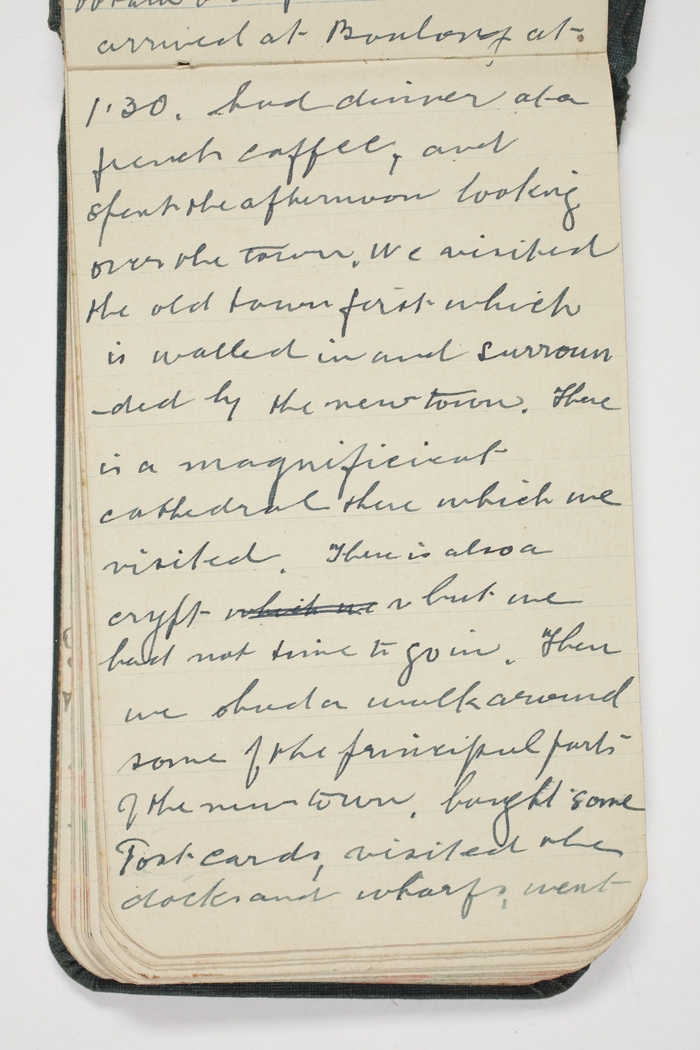 arrived at Boulong at
1.30. had dinner at a
french coffee, and
spent the afternoon looking
over the town. We visited
the old town first which
is walled in and surroun
-ded by the new town. There
is a magnificient
cathedral there which we
visited. There is also a
cryft which we but we
had not time to go in. Then
we had a walk around
some of the principal parts
of the new town, bought some
Post cards, visited the
docks and wharfs, went